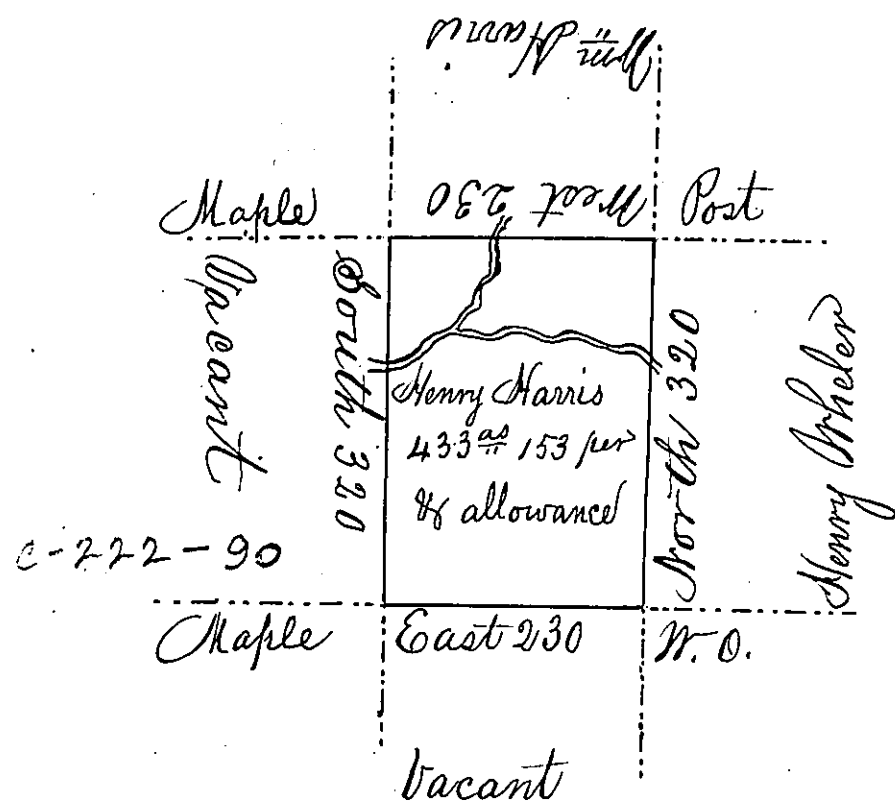 Wm Harris
Maple
West 230
Post
Vacant
South 320
Henry Harris
433 as 153 per
& allowance
North 320
Henry Wheler
C-222-90
Maple
East 230
W. O.
Vacant